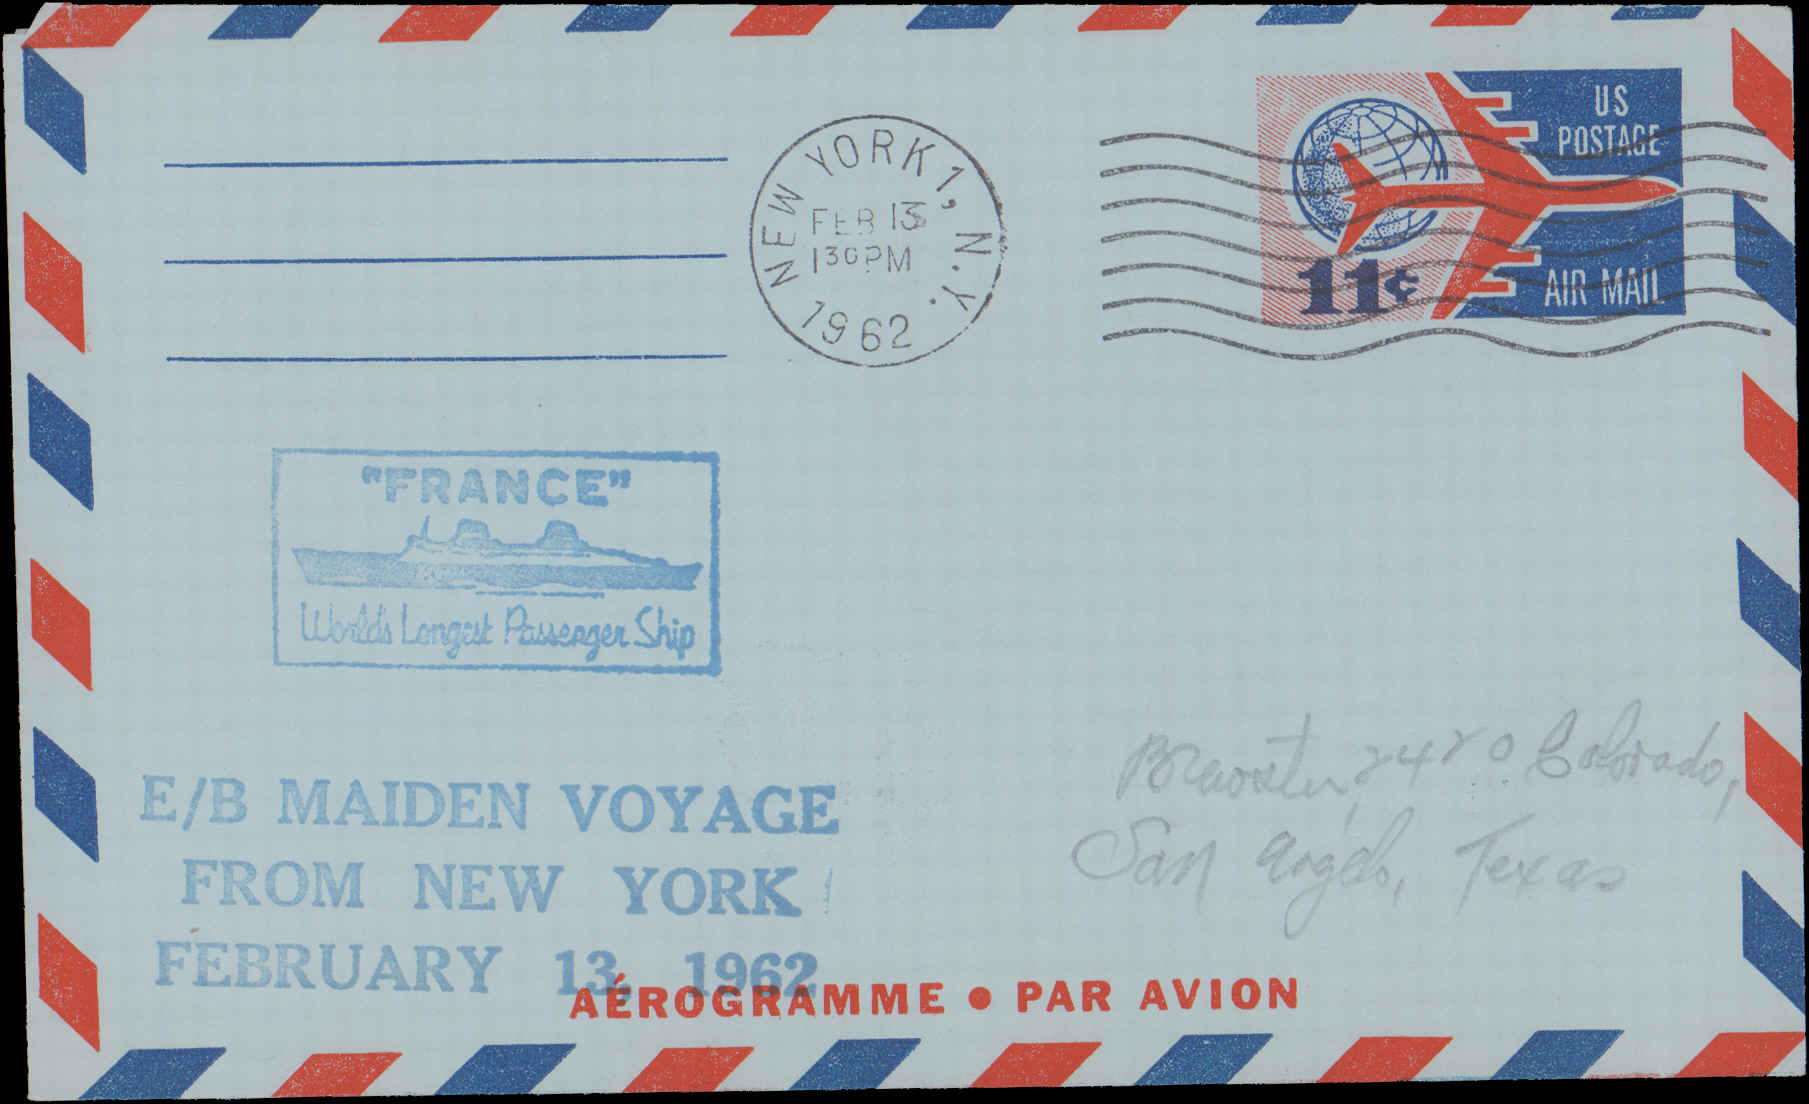 NEW YORK 1, N.Y.
FEB 13
1 30 PM
1962
US
POSTAGE
11¢
AIR MAIL
"FRANCE"
Worlds Longest Passenger Ship
Brewster, 2420 Colorado,
San Angelo, Texas
E/B MAIDEN VOYAGE
FROM NEW YORK
FEBRUARY 13, 1962
AÉROGRAMME • PAR AVION